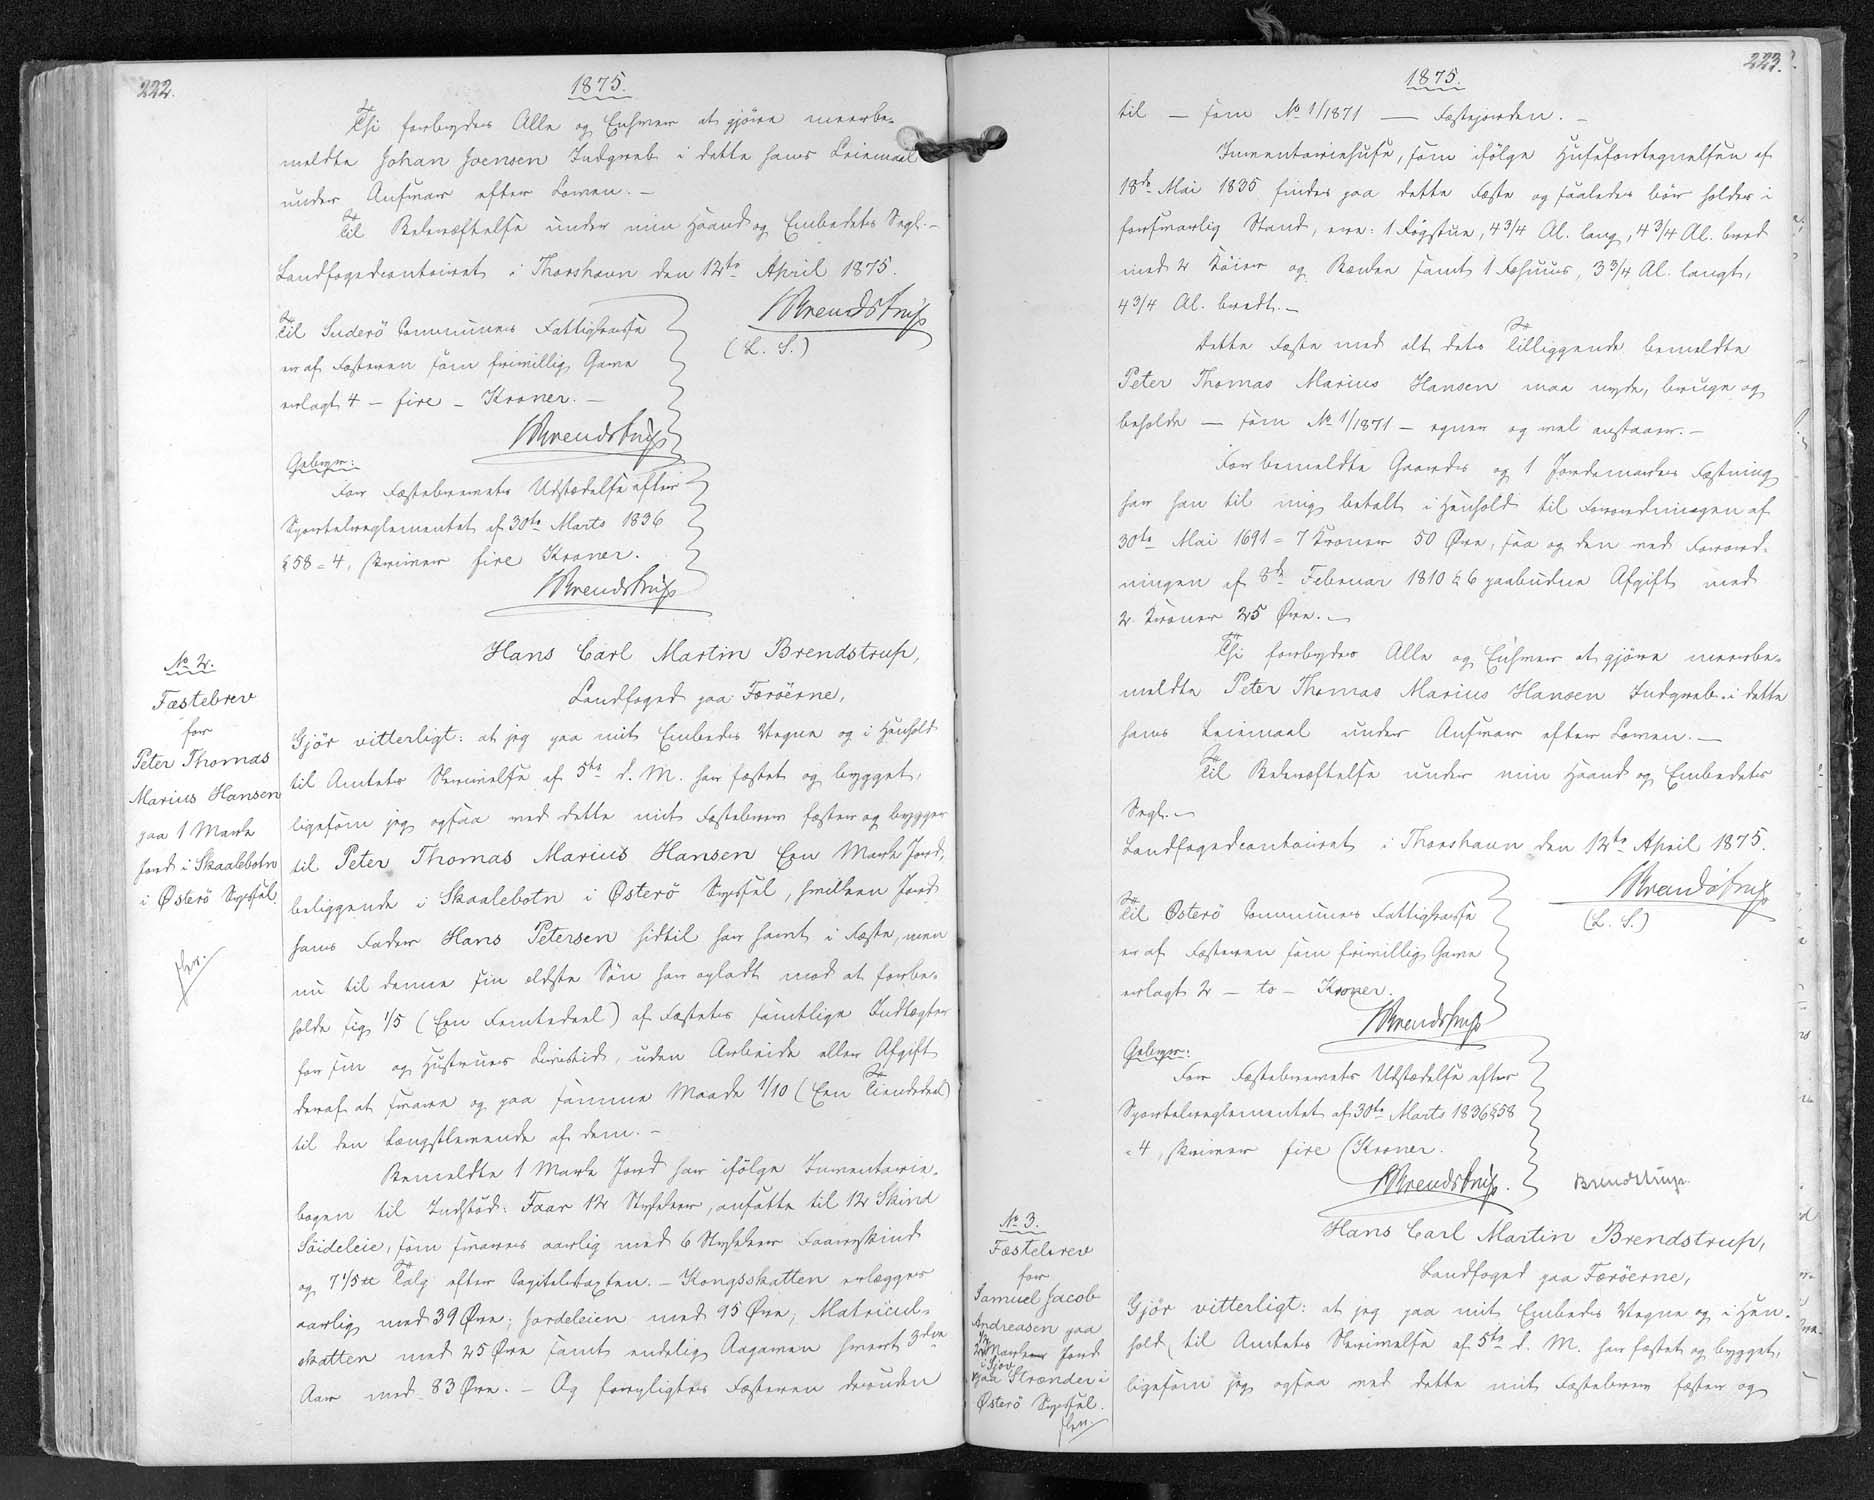 222.
1875.
Thi forbydes Alle og Enhver at gjöre meerbe-
meldte Johan Joensen Indgreb i dette hans Leiemaal
under Ansvar efter Loven. –
Til Bekræftelse under min Haand og Embedets Segl. –
Landfogedcontoiret i Thorshavn den 12te April 1875.
Brendstrup
(L. S.)
Til Suderö Communes Fattigkasse
er af Fæsteren som frivillig Gave
erlagt 4 – fire – Kroner. –
Brendstrup
Gebyr:
For Fæstebrevets Udstedelse efter
Sportelreglementet af 30te Marts 1836
§ 58 = 4, skriver fire Kroner.
Brendstrup
No 2.
Fæstebrev
for
Peter Thomas
Marius Hansen
paa 1 Mark
Jord i Skaalebotn
i Østerö Syssel.
Hans Carl Martin Brendstrup,
Landfoged paa Færöerne,
Gjör vitterligt: at jeg paa mit Embeds Vegne og i Henhold
til Amtets Skrivelse af 5te d. M. har fæstet og bygget,
ligesom jeg ogsaa ved dette mit Fæstebrev fæster og bygger
til Peter Thomas Marius Hansen Een Mark Jord,
beliggende i Skaalebotn i Østerö Syssel, hvilken Jord
hans Fader Hans Petersen hidtil har havt i Fæste, men
nu til denne sin eldste Sön har opladt mod at forbe-
holde sig 1/5 (Een Femtedeel) af Fæstets samtlige Indtægter
for sin og Hustrues Livstid, uden Arbeide eller Afgift
deraf at svare og paa samme Maade 1/10 (Een Tiendedeel)
til den Længstlevende af dem. –
Bemeldte 1 Mark Jord har ifölge Inventarie-
bogen til Indstöd: Faar 12 Stykker, ansatte til 12 Skind
Söideleie, som svares aarlig med 6 Stykker Faareskind
og 7 1/5 ℔ Talg efter Capitelstaxten. – Kongsskatten erlægges
aarlig med 39 Øre; Jordeleien med 95 Øre; Matricul-
skatten med 25 Øre samt endelig Aagaven hvert 3die
Aar med 83 Øre. – Og forpligtes Fæsteren desuden
223.
1875.
til – som No 1/1871 – Fæstejorden. –
Inventariehuse, som ifölge Husefortegnelsen af
18de Mai 1835 findes paa dette Fæste og saaledes bör holdes i
forsvarlig Stand, ere: 1 Rögstue, 4 3/4 Al. lang, 4 3/4 Al. bred
med 2 Köier og Bænke samt 1 Fæhuus, 3 3/4 Al. langt,
4 3/4 Al. bredt. –
Dette Fæste med alt dets Tilliggende bemeldte
Peter Thomas Marius Hansen maa nyde, bruge og
beholde – som No 1/1871 – egner og vel anstaaer. –
For bemeldte Gaards og 1 Jordemarks Fæstning
har han til mig betalt i Henhold til Forordningen af
30te Mai 1691 = 7 Kroner 50 Øre, saa og den ved Forord-
ningen af 8de Februar 1810 § 6 paabudne Afgift med
2 Kroner 25 Øre. –
Thi forbydes Alle og Enhver at gjöre meerbe-
meldte Peter Thomas Marius Hansen Indgreb i dette
hans Leiemaal under Ansvar efter Loven. –
Til Bekræftelse under min Haand og Embedets
Segl. –
Landfogedcontoiret i Thorshavn den 12te April 1875.
Brendstrup
(L. S.)
Til Österö Communes Fattigkasse
er af Fæsteren som frivillig Gave
erlagt 2 – to – Kroner.
Brendstrup
Gebyr:
For Fæstebrevets Udstedelse efter
Sportelreglementet af 30te Marts 1836 § 58
= 4, skriver fire Kroner.
Brendstrup.
Brendstrup
No 3.
Fæstebrev
for
Samuel Jacob
Andreasen paa
Jord
i Sjov
paa Strænder i
Østerö Syssel.
Hans Carl Martin Brendstrup,
Landfoged paa Færöerne,
Gjör vitterligt: at jeg paa mit Embeds Vegne og i Hen-
hold til Amtets Skrivelse af 5te d. M. har fæstet og bygget,
ligesom jeg ogsaa ved dette mit Fæstebrev fæster og